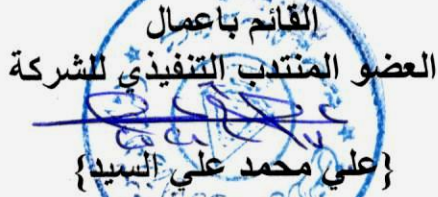 القائم باعمال
العضو المنتدب التنفيذي للشركة
{علي محمد علي السيد}